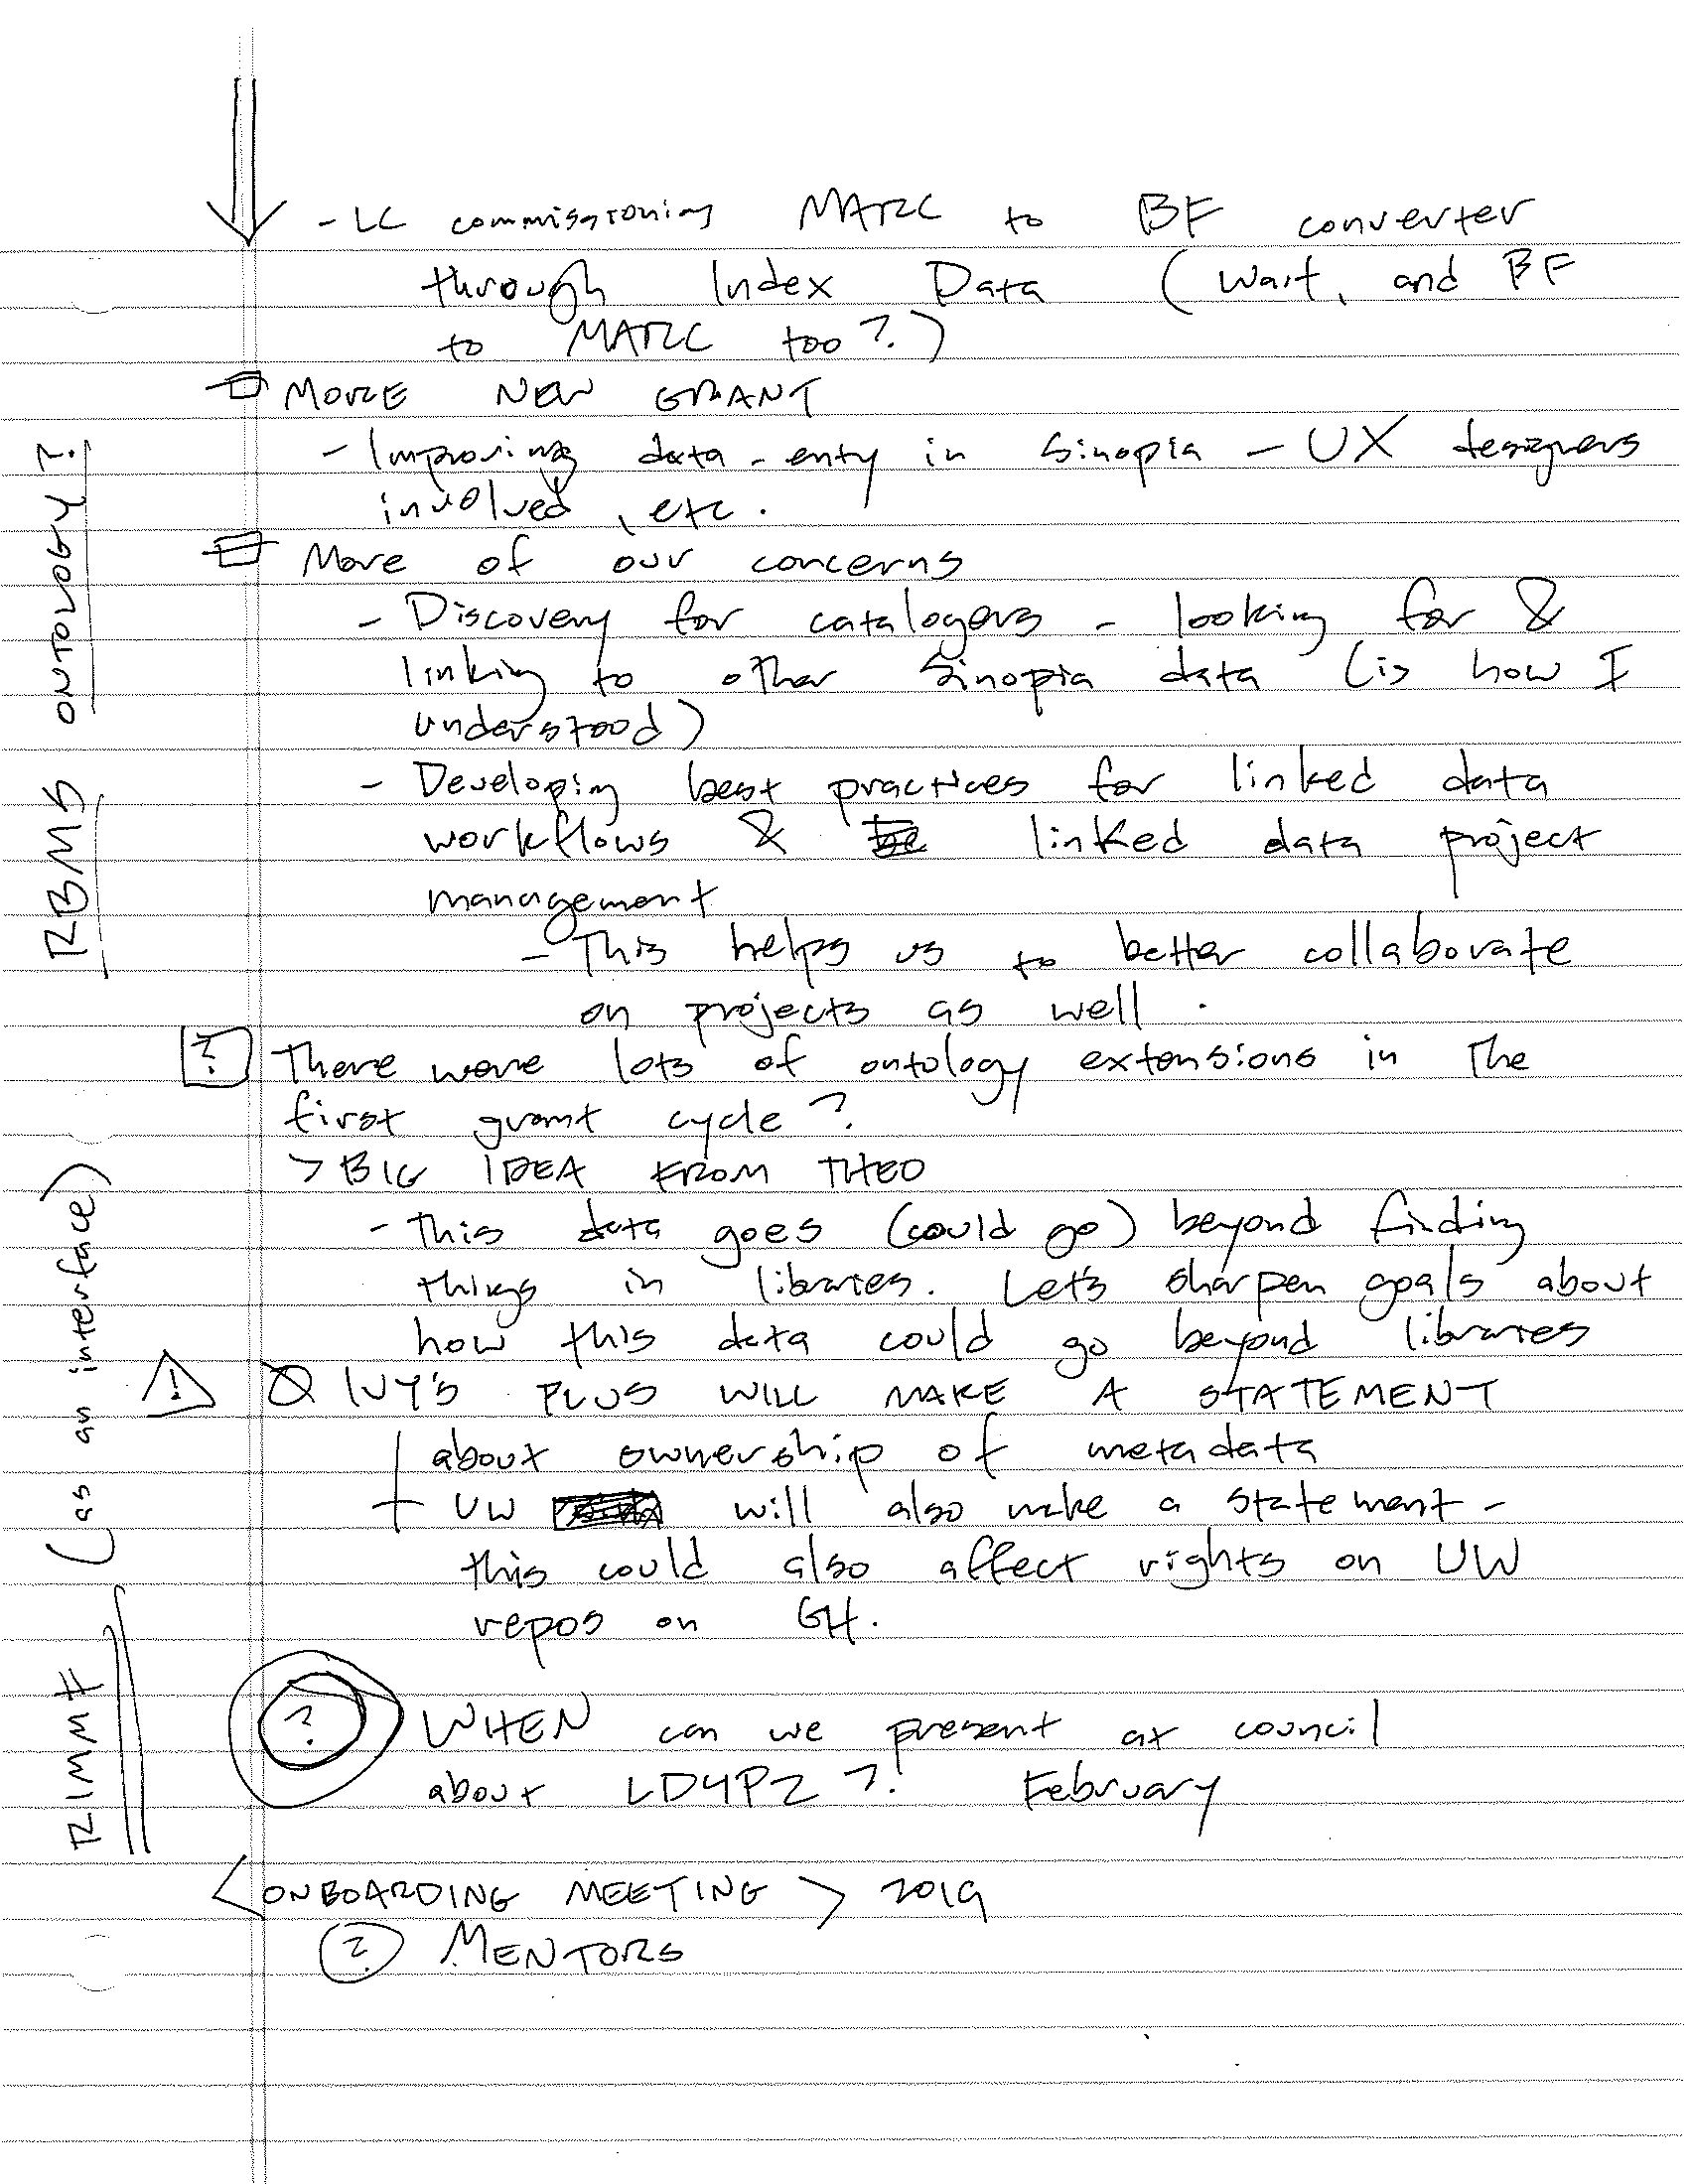 - LC commissioning MARC to BF converter
through Index Data (wait, and BF
to MARC too?)
MORE NEW GRANT
- Improving data-enty in Sinopia - UX designers
involved, etc.
More of our concerns
- Discovery for catalogers - looking for &
linking to other Sinopia data (is how I
understood)
- Developing best practices for linked data
workflows & be linked data project
management
- This helps us to better collaborate
on projects as well.
? There were lots of ontology extensions in the
first grant cycle?
> BIG IDEA FROM THEO
- this data goes (could go) beyond finding
things in libraries. Let's sharpen goals about
how this data could go beyond libraries
! IVY'S PLUS WILL MAKE A STATEMENT
about ownership of metadata
UW will also make a statement -
this could also affect rights on UW
repos on GH.
? WHEN can we present at council
about LD4P2?! February
<ONBOARDING MEETING> 2019
? MENTORS
RBMS ONTOLOGY?
RIMMF (as an interface)